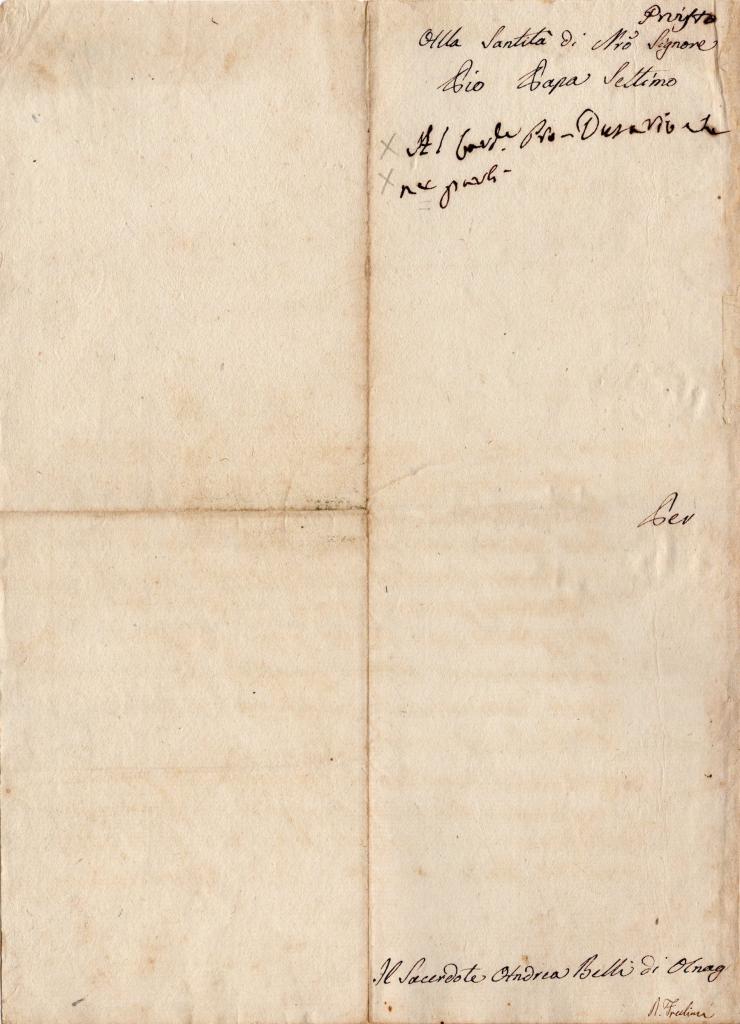 Provisto
Alla Santità di Nrõ Signore
Pio Papa Settimo
Al Card.e Pro-Datario che
ne parli
Per
Il Sacerdote Andrea Belli di Anag